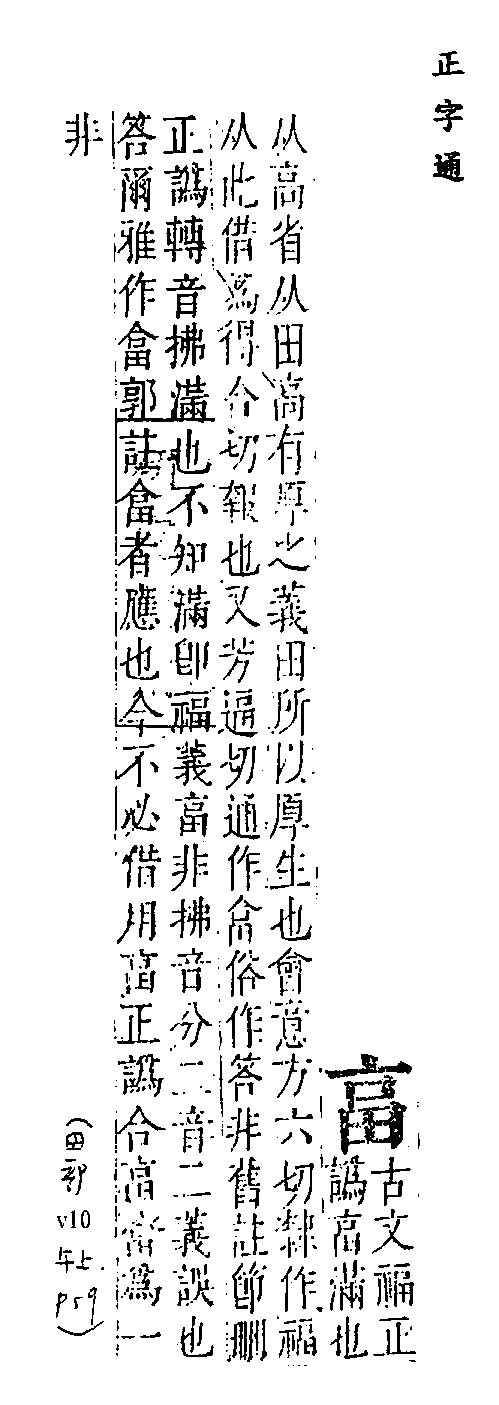 正字通
畗
古文福正
譌畗滿也
从高省从田高有厚之義田所以厚生也會意方六切隸作福
从此借爲得合切報也又芳逼切通作畣俗作答非舊註節刪
正譌轉音拂滿也不知滿卽福義畗非拂音分二音二義誤也
答爾雅作畣郭註畣者應也今不必借用畗正譌合畗畣爲一
非
(田部
v10
午上.
p59)